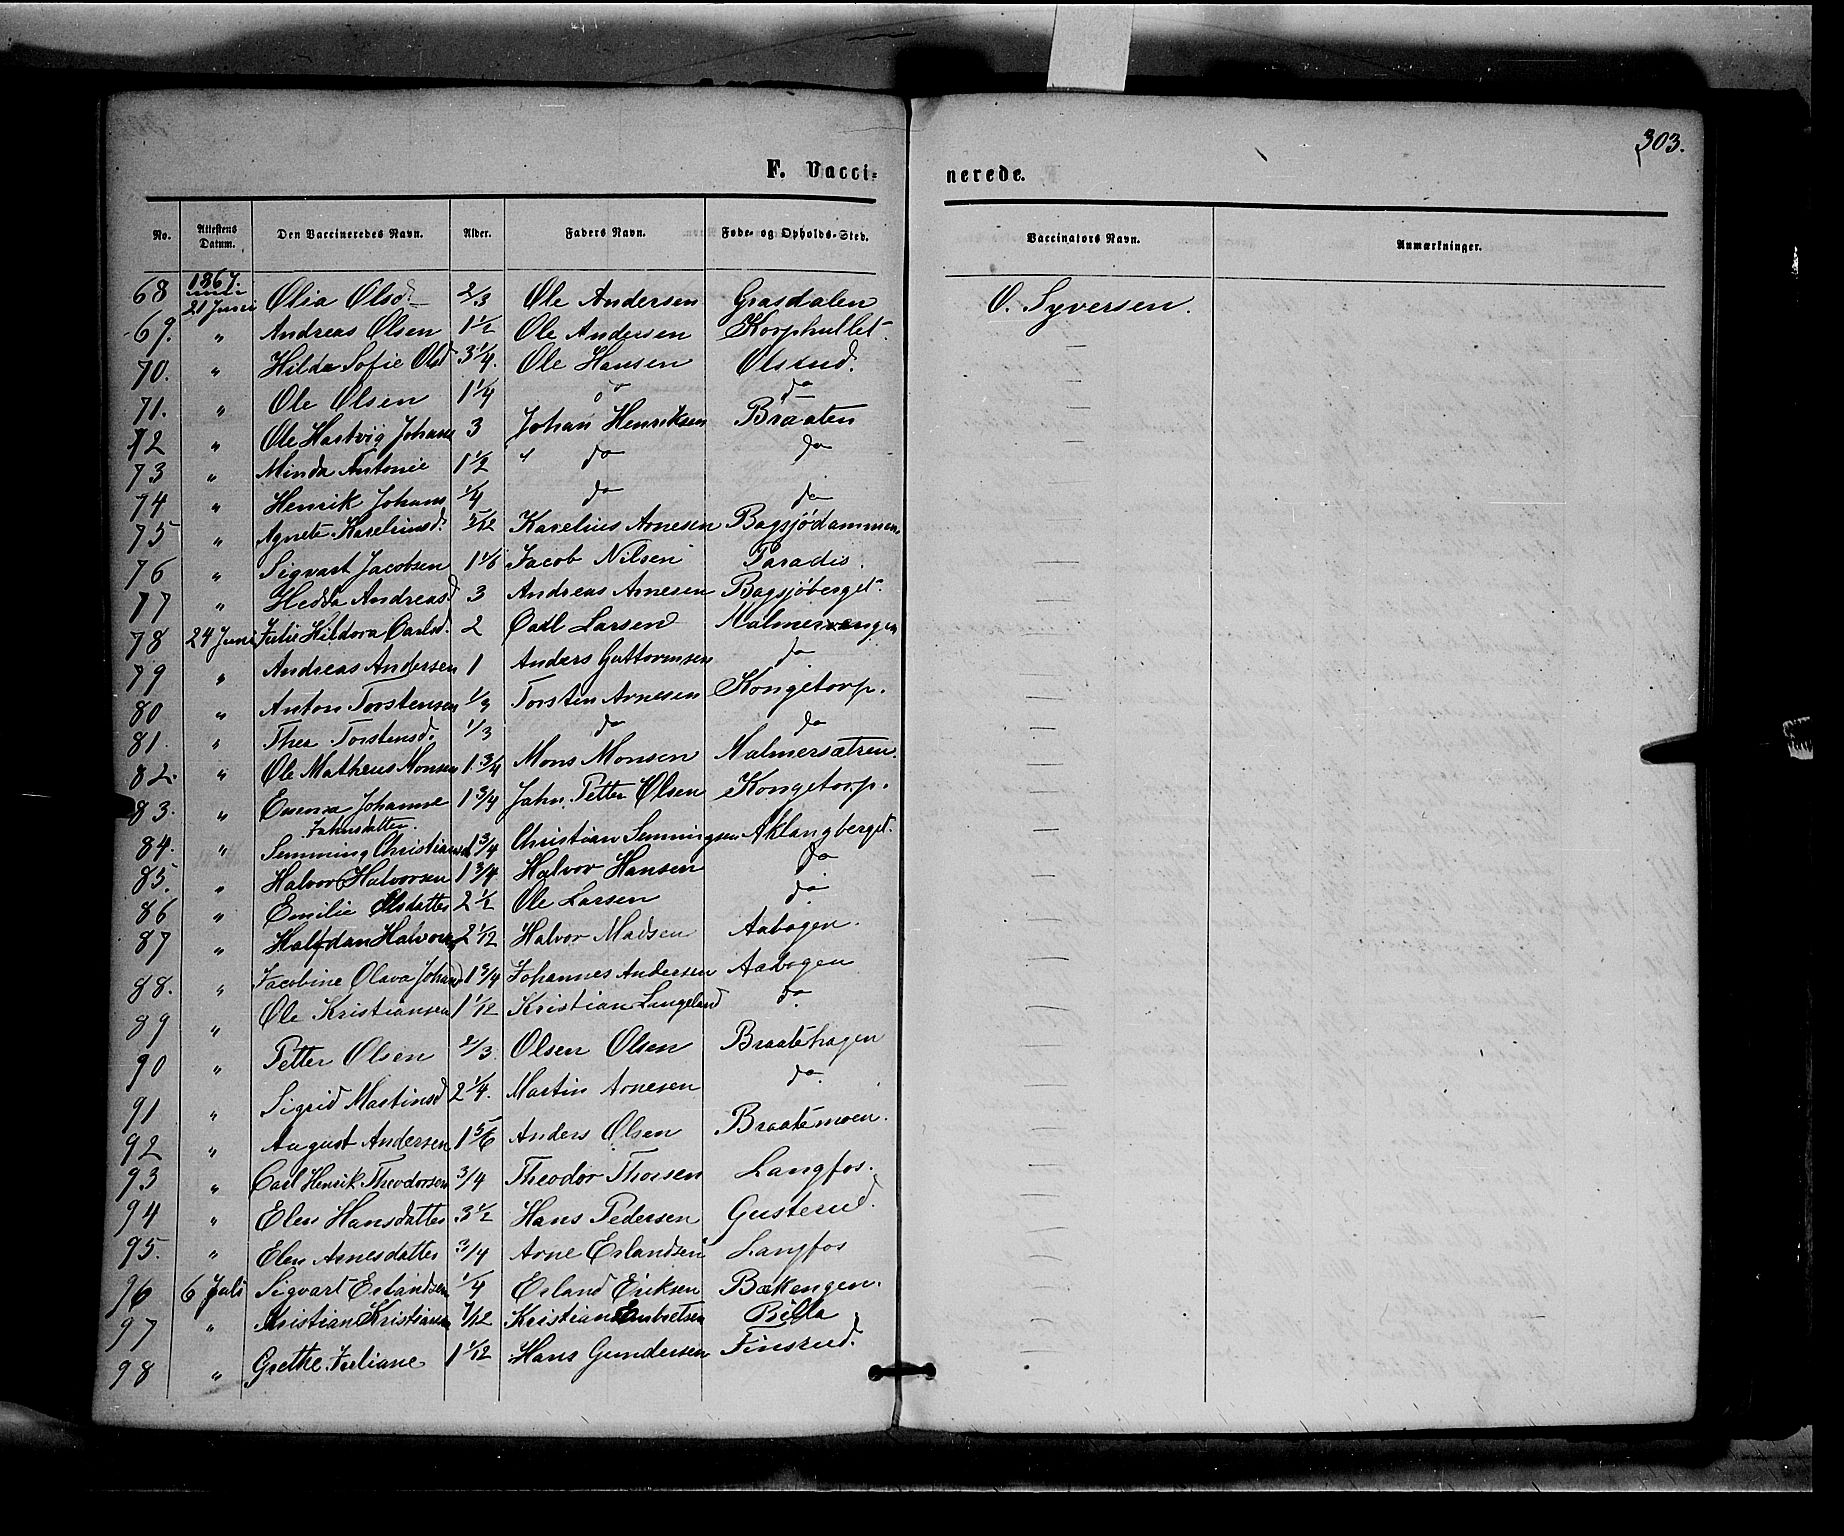 303.
F. Vacci- nerede.
No. Attestens Datum. Den Vaccineredes Navn. Alder. Faders Navn. Føde- og Opholds-Sted. Vaccinators Navn. Anmærkninger.
1867.
68 21 Juni Olia Olsd 2/3 Ole Andersen Grasdalen O. Syversen.
69. " Andreas Olsen 1 1/2 Ole Andersen Korphullet —
70. " Hilda Sofie Olsd 3 1/4. Ole Hansen Olsrud. —
71. " Ole Olsen 1 1/4 do do —
72 " Ole Hartvig Johans 3 Johan Henriksen Braaten —
73 " Minda Antonie 1 1/2 " do do —
74 " Henrik Johans 1/4 do do —
75 " Agnete Kareliusd. 5/12 Karelius Arnesen Bagsjødammen. —
76 " Sigvart Jacobsen 1 1/6 Jacob Nilsen Paradis. —
77 " Hedda Andreasd 3 Andreas Arnesen Bagsjøberget. —
78 24 Juni Julie Hildora Carlsd. 2 Carl Larsen Malmervangen —
79 " Andreas Andersen 1 Anders Guttormsen do —
80 " Anton Torstensen 1/3 Torsten Arnesen Kongetorp. —
81 " Thea Torstensd. 1/3 do do —
82. " Ole Matheus Monsen 1 3/4 Mons Monsen Malmersætren. —
83. " Evensa Johanne Jahnsdatter. 1 3/4 Jahn Petter Olsen Kongetorp. —
84. " Semming Christiansd 1 3/4 Christian Semmingsen Aklangberget. —
85. " Halvor Halvorsen 1 3/4 Halvor Hansen do —
86 " Emilie Olsdatter 2 1/2 Ole Larsen do —
87 " Halfdan Halvors 2 1/12 Halvor Madsen Aabogen. —
88. " Jacobine Olava Johand 1 3/4 Johannes Andersen Aabogen —
89 " Ole Kristiansen 1 1/12 Kristian Langeland do. —
90 " Petter Olsen 2/3. Olsen Olsen Braatehagen —
91 " Sigrid Martinsd 2 1/4. Martin Arnesen do. —
92 " August Andersen 1 5/6 Anders Olsen Braatemoen. —
93 " Carl Henrik Theodorsen 3/4 Theodor Thorsen Langfos. —
94 " Elen Hansdatter 3 1/2 Hans Pedersen Gusterud. —
95. " Elen Arnesdatter 3/4 Arne Erlandsen Langfos —
96 6 Juli Sigvart Erlandsen 1/4 Erland Eriksen Bækengen. —
97 " Kristian Kristians 7/12 Kristian Embretsen Bella —
98 " Grethe Juliane 1 1/12 Hans Gundersen Finsrud. —